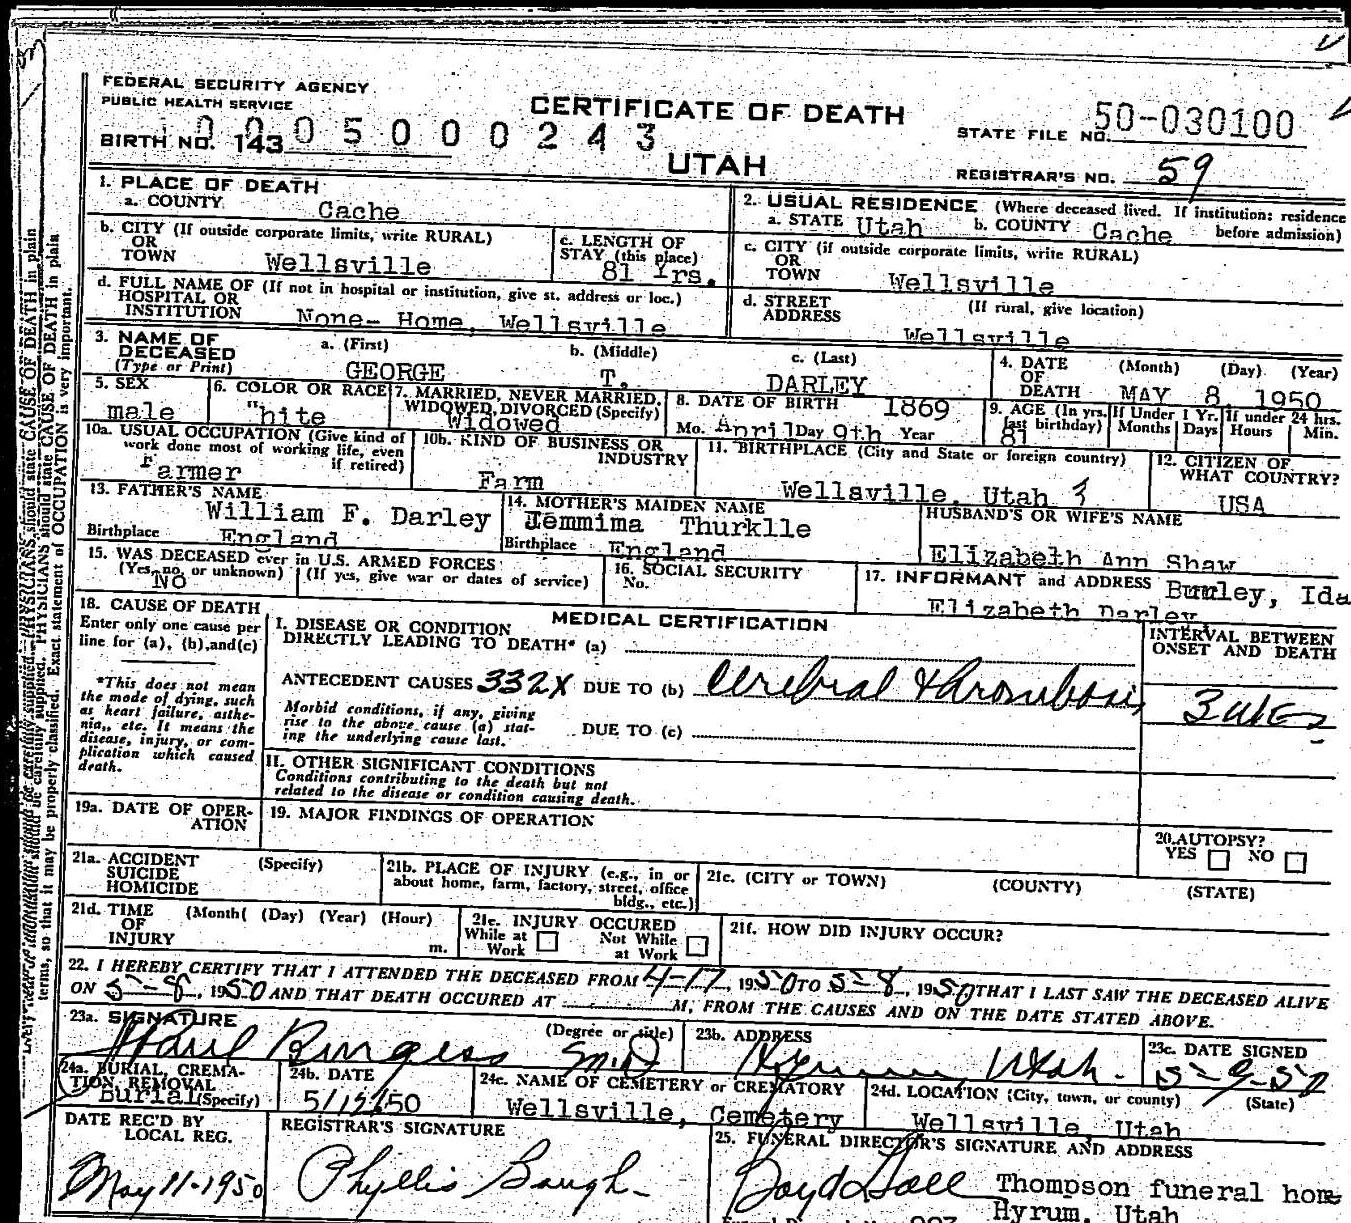 FEDERAL SECURITY AGENCY
PUBLIC HEALTH SERVICE
CERTIFICATE OF DEATH
UTAH
BIRTH NO. 143
0 0 0 5 0 0 0 2 4 3
STATE FILE NO. 50-030100
REGISTRAR'S NO. 59
1. PLACE OF DEATH
a. COUNTY Cache
2. USUAL RESIDENCE (Where deceased lived. If institution: residence before admission)
a. STATE Utah b. COUNTY Cache
b. CITY (If outside corporate limits, write RURAL)
OR
TOWN Wellsville
c. LENGTH OF
STAY (this place)
81 Yrs.
c. CITY (if outside corporate limits, write RURAL)
OR
TOWN Wellsville
d. FULL NAME OF (If not in hospital or institution, give st. address or loc.)
HOSPITAL OR
INSTITUTION None- Home, Wellsville
d. STREET (If rural, give location)
ADDRESS
Wellsville
3. NAME OF
DECEASED
(Type or Print)
a. (First) b. (Middle) c. (Last)
GEORGE T. DARLEY
4. DATE (Month) (Day) (Year)
OF
DEATH MAY 8, 1950
5. SEX
male
6. COLOR OR RACE
"hite
7. MARRIED, NEVER MARRIED,
WIDOWED, DIVORCED (Specify)
Widowed
8. DATE OF BIRTH 1869
Mo. April Day 9th Year
9. AGE (In yrs. last birthday) 81
If Under 1 Yr. Months Days
If under 24 hrs. Hours Min.
10a. USUAL OCCUPATION (Give kind of
work done most of working life, even
if retired)
Farmer
10b. KIND OF BUSINESS OR
INDUSTRY
Farm
11. BIRTHPLACE (City and State or foreign country)
Wellsville, Utah
12. CITIZEN OF
WHAT COUNTRY?
USA
13. FATHER'S NAME
William F. Darley
Birthplace England
14. MOTHER'S MAIDEN NAME
Jemmima Thurklle
Birthplace England
HUSBAND'S OR WIFE'S NAME
Elizabeth Ann Shaw
15. WAS DECEASED ever in U.S. ARMED FORCES?
(Yes, no, or unknown) (If yes, give war or dates of service)
NO
16. SOCIAL SECURITY
No.
17. INFORMANT and ADDRESS Burley, Ida
Elizabeth Darley
18. CAUSE OF DEATH
Enter only one cause per
line for (a), (b), and (c)
*This does not mean
the mode of dying, such
as heart failure, asthe-
nia,, etc. It means the
disease, injury, or com-
plication which caused
death.
MEDICAL CERTIFICATION
I. DISEASE OR CONDITION
DIRECTLY LEADING TO DEATH* (a)
INTERVAL BETWEEN
ONSET AND DEATH
ANTECEDENT CAUSES 332X DUE TO (b) Cerebral thrombosis
3 wks
Morbid conditions, if any, giving
rise to the above cause (a) stat-
ing the underlying cause last.
DUE TO (c)
II. OTHER SIGNIFICANT CONDITIONS
Conditions contributing to the death but not
related to the disease or condition causing death.
19a. DATE OF OPER-
ATION
19. MAJOR FINDINGS OF OPERATION
20. AUTOPSY?
YES NO
21a. ACCIDENT (Specify)
SUICIDE
HOMICIDE
21b. PLACE OF INJURY (e.g., in or
about home, farm, factory, street, office
bldg., etc.)
21c. (CITY or TOWN) (COUNTY) (STATE)
21d. TIME (Month( (Day) (Year) (Hour)
OF
INJURY m.
21e. INJURY OCCURED
While at Work Not While at Work
21f. HOW DID INJURY OCCUR?
22. I HEREBY CERTIFY THAT I ATTENDED THE DECEASED FROM 4-17, 1950 TO 5-8, 1950 THAT I LAST SAW THE DECEASED ALIVE
ON 5-8, 1950 AND THAT DEATH OCCURED AT M, FROM THE CAUSES AND ON THE DATE STATED ABOVE.
23a. SIGNATURE (Degree or title)
Paul Burgess MD
23b. ADDRESS
Hyrum, Utah.
23c. DATE SIGNED
5-9-50
24a. BURIAL, CREMA-
TION, REMOVAL
Burial (Specify)
24b. DATE
24c. NAME OF CEMETERY or CREMATORY
Wellsville, Cemetery
24d. LOCATION (City, town, or county) (State)
Wellsville, Utah
DATE REC'D BY
LOCAL REG.
May 11-1950
REGISTRAR'S SIGNATURE
Phyllis Baugh
25. FUNERAL DIRECTOR'S SIGNATURE AND ADDRESS
Thompson funeral home
Hyrum, Utah